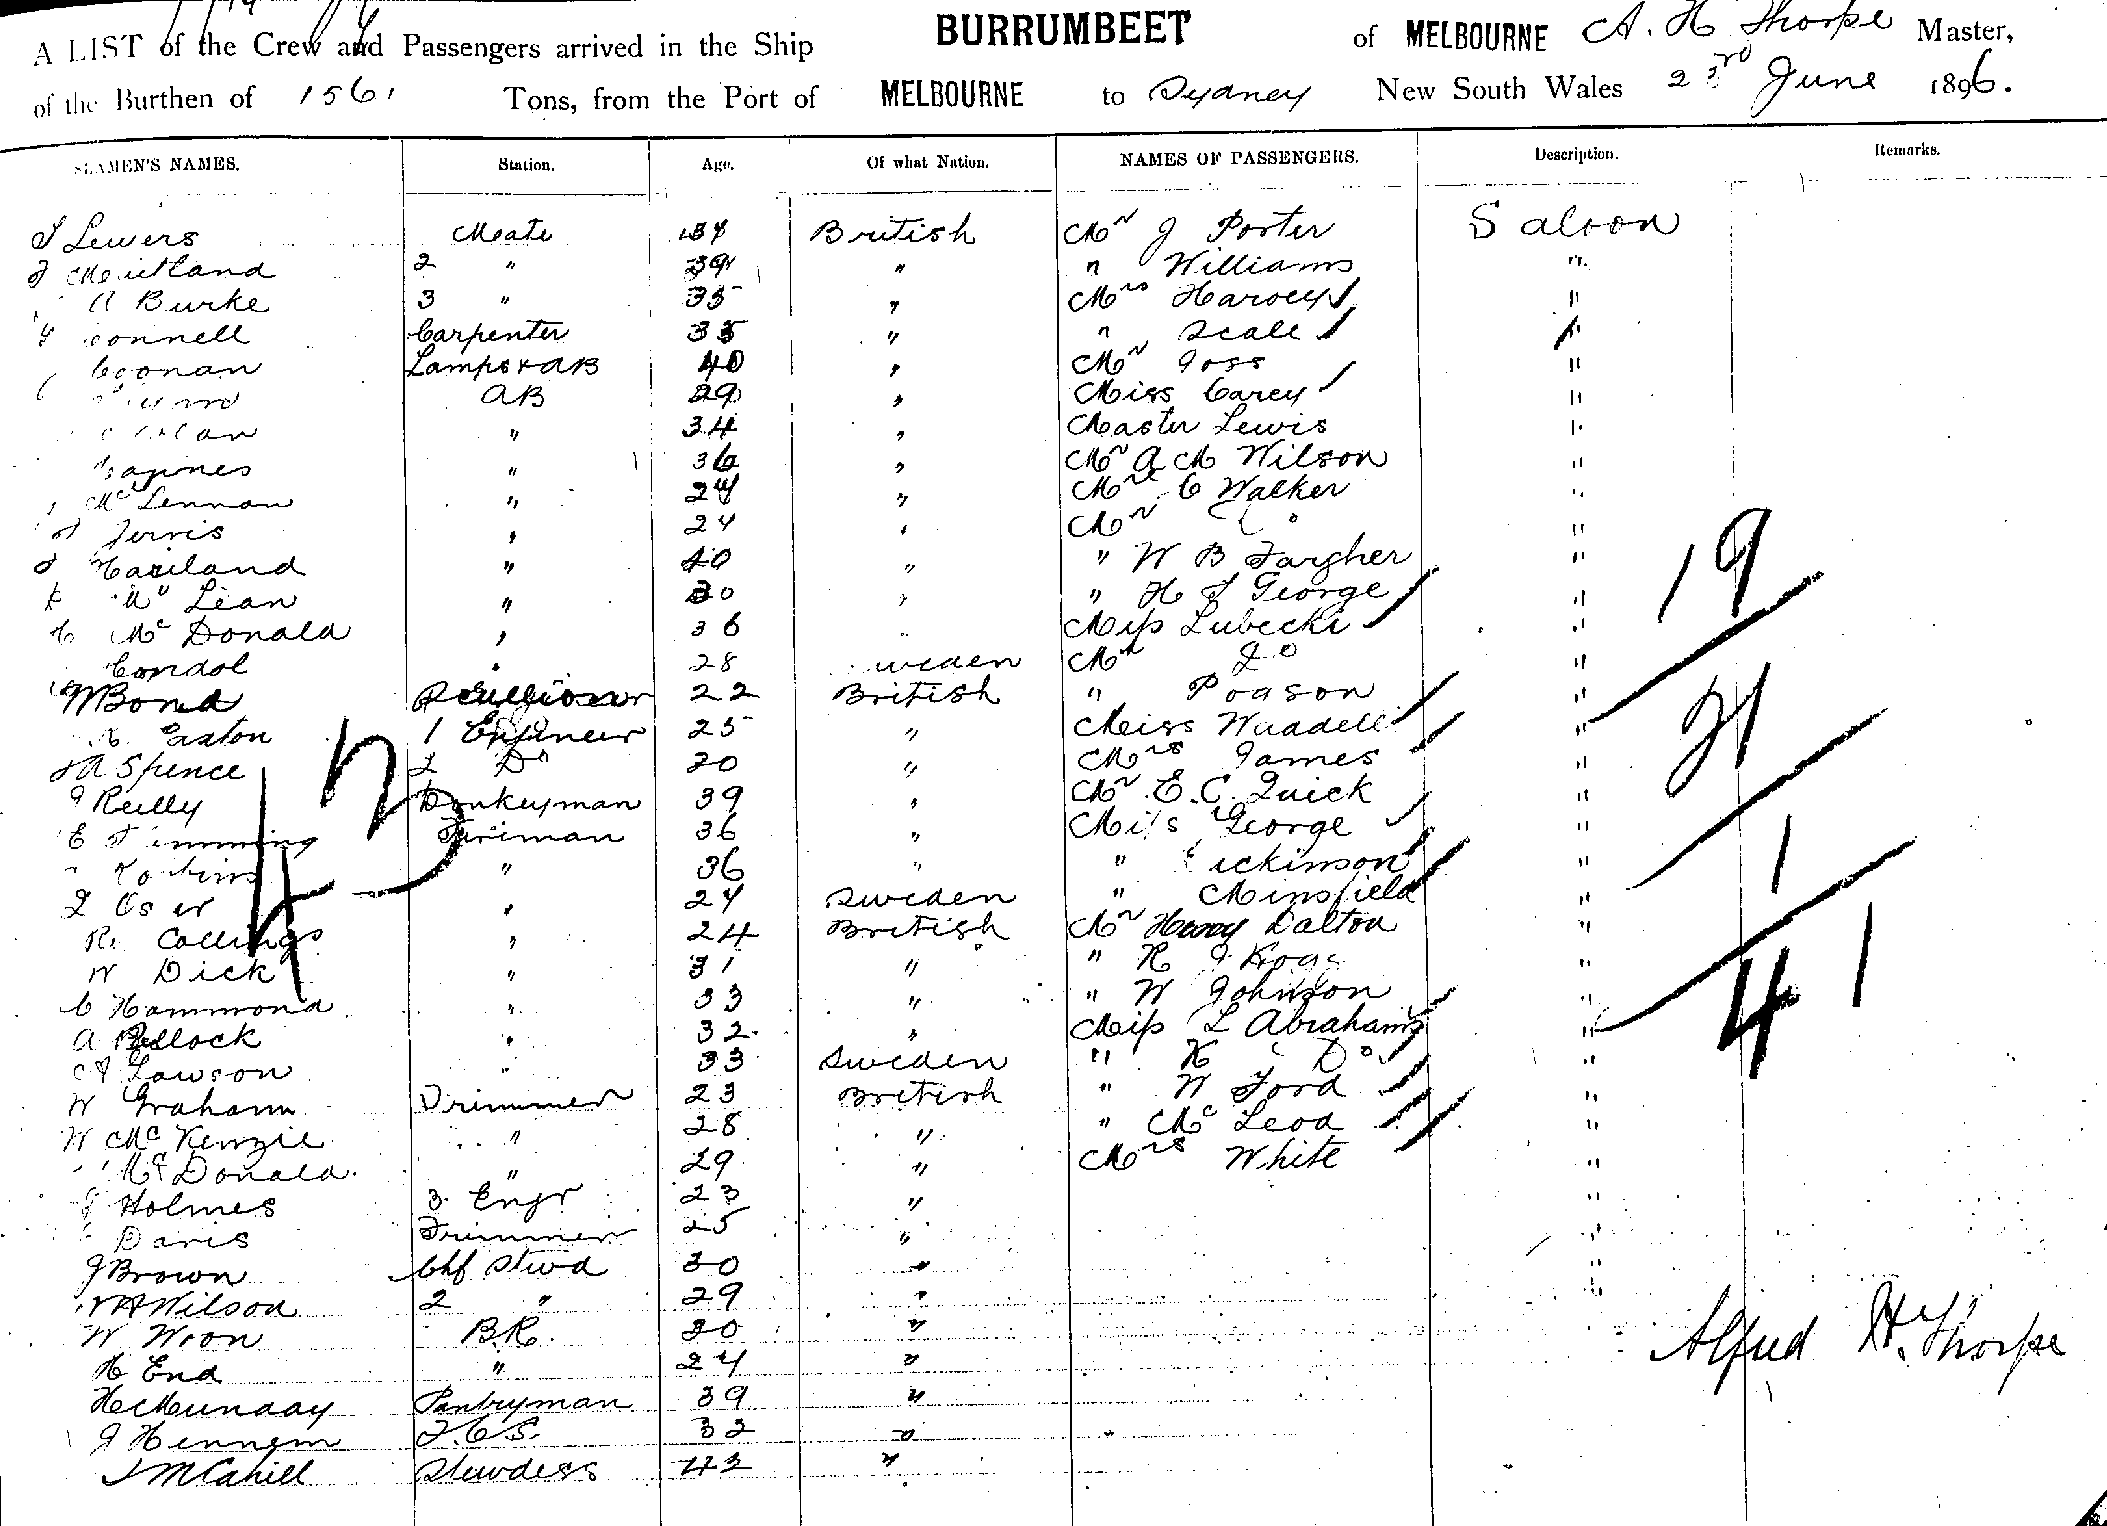 A LIST of the Crew and Passengers arrived in the Ship BURRUMBEET of MELBOURNE A. H Thorpe Master,
of the Burthen of 1561 Tons, from the Port of MELBOURNE to Sydney New South Wales 23rd June 1896.
SEAMEN'S NAMES. Station. Age. Of what Nation. NAMES OF PASSENGERS. Description. Remarks.
Lewers Mate British Mr J Porter Saloon
Maitland 2 " 39 " " Williams "
A Burke 3 " 35 " Mrs Harvey "
Connell Carpenter 35 " " Scale "
Coonan Lamps & AB 40 " Mr Joss "
AB 29 " Miss Carey "
" 34 " Master Lewis "
" 36 " Mr A M Wilson "
McLennan " 24 " Mrs C Walker "
Jervis " 24 " Mr "
" 40 " " W B Fargher " 19
McLean " 30 " " H J George "
McDonald " 36 " Miss Lubecki "
Condol " 28 Sweden Mr Do "
Bond 22 British " Poason " 21
Easton 1 Engineer 25 " Miss Waddell "
A Spence 2 Do 30 " Mrs James "
J Reilly Donkeyman 39 " Mr E. C. Quick "
E Timming Fireman 36 " Miss George " 1
" 36 " " Dickinson "
" 24 Sweden " Minsfield "
R Collings " 24 British Mr Henry Dalton "
W Dick " 31 " " "
C Hammond " 33 " " W Johnson " 41
A Pollock " 32 " Miss L Abrahams "
Lawson " 33 Sweden " Do "
W Graham Trimmer 23 British " W Ford "
W McKenzie " 28 " " McLeod "
McDonald " 29 " Mrs White "
Holmes 3 Engr 23 " "
Davis Trimmer 25 " "
J Brown Chf Stwd 30 " "
Wilson 2 " 29 " "
W Woon B.R. 20 " Alfred H. Thorpe
H End " 24 "
H Munday Pantryman 39 "
J Hennem F.C.S. 32 "
J McCahill Stewdess 43 "
43